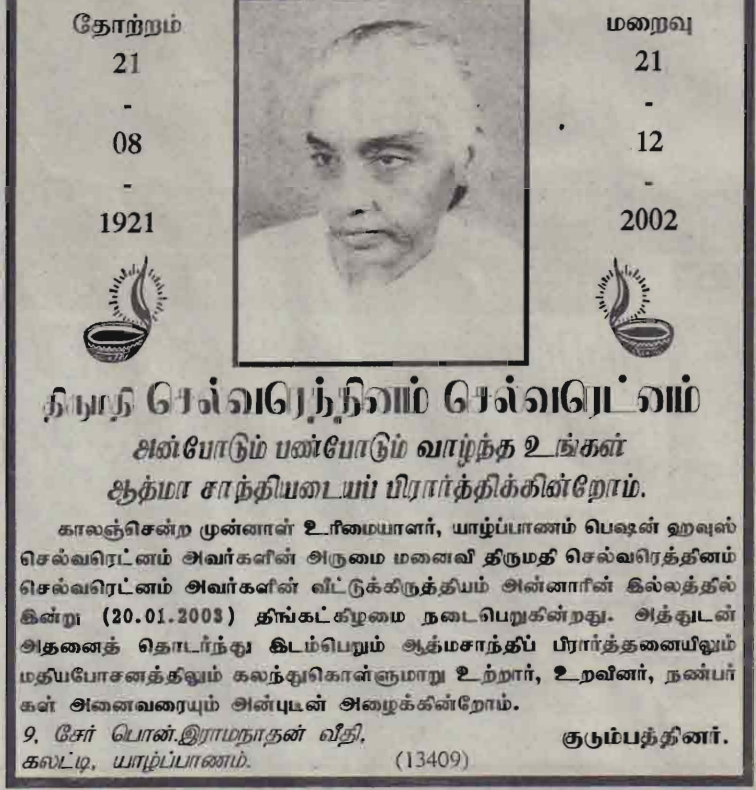 தோற்றம்
21
-
08
-
1921
மறைவு
21
-
12
-
2002
திருமதி செல்வரெத்தினம் செல்வரெட்னம்
அன்போடும் பண்போடும் வாழ்ந்த உங்கள்
ஆத்மா சாந்தியடையப் பிரார்த்திக்கின்றோம்.
காலஞ்சென்ற முன்னாள் உரிமையாளர், யாழ்ப்பாணம் பெஷன் ஹவுஸ்
செல்வரெட்னம் அவர்களின் அருமை மனைவி திருமதி செல்வரெத்தினம்
செல்வரெட்னம் அவர்களின் வீட்டுக்கிருத்தியம் அன்னாரின் இல்லத்தில்
இன்று (20.01.2003) திங்கட்கிழமை நடைபெறுகின்றது. அத்துடன்
அதனைத் தொடர்ந்து இடம்பெறும் ஆத்மசாந்திப் பிரார்த்தனையிலும்
மதியபோசனத்திலும் கலந்துகொள்ளுமாறு உற்றார், உறவினர், நண்பர்
கள் அனைவரையும் அன்புடன் அழைக்கின்றோம்.
9, சேர் பொன்.இராமநாதன் வீதி, குடும்பத்தினர்.
கலட்டி, யாழ்ப்பாணம். (13409)